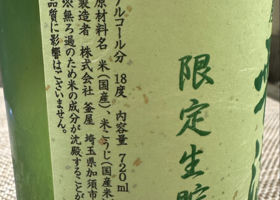 限定生貯
アルコール分 18度 内容量 720ml
原材料名 米(国産)、米こうじ(国産米
製造者 株式会社 釜屋 埼玉県加須市
※無ろ過のため米の成分が沈殿することが
品質に影響はございません。